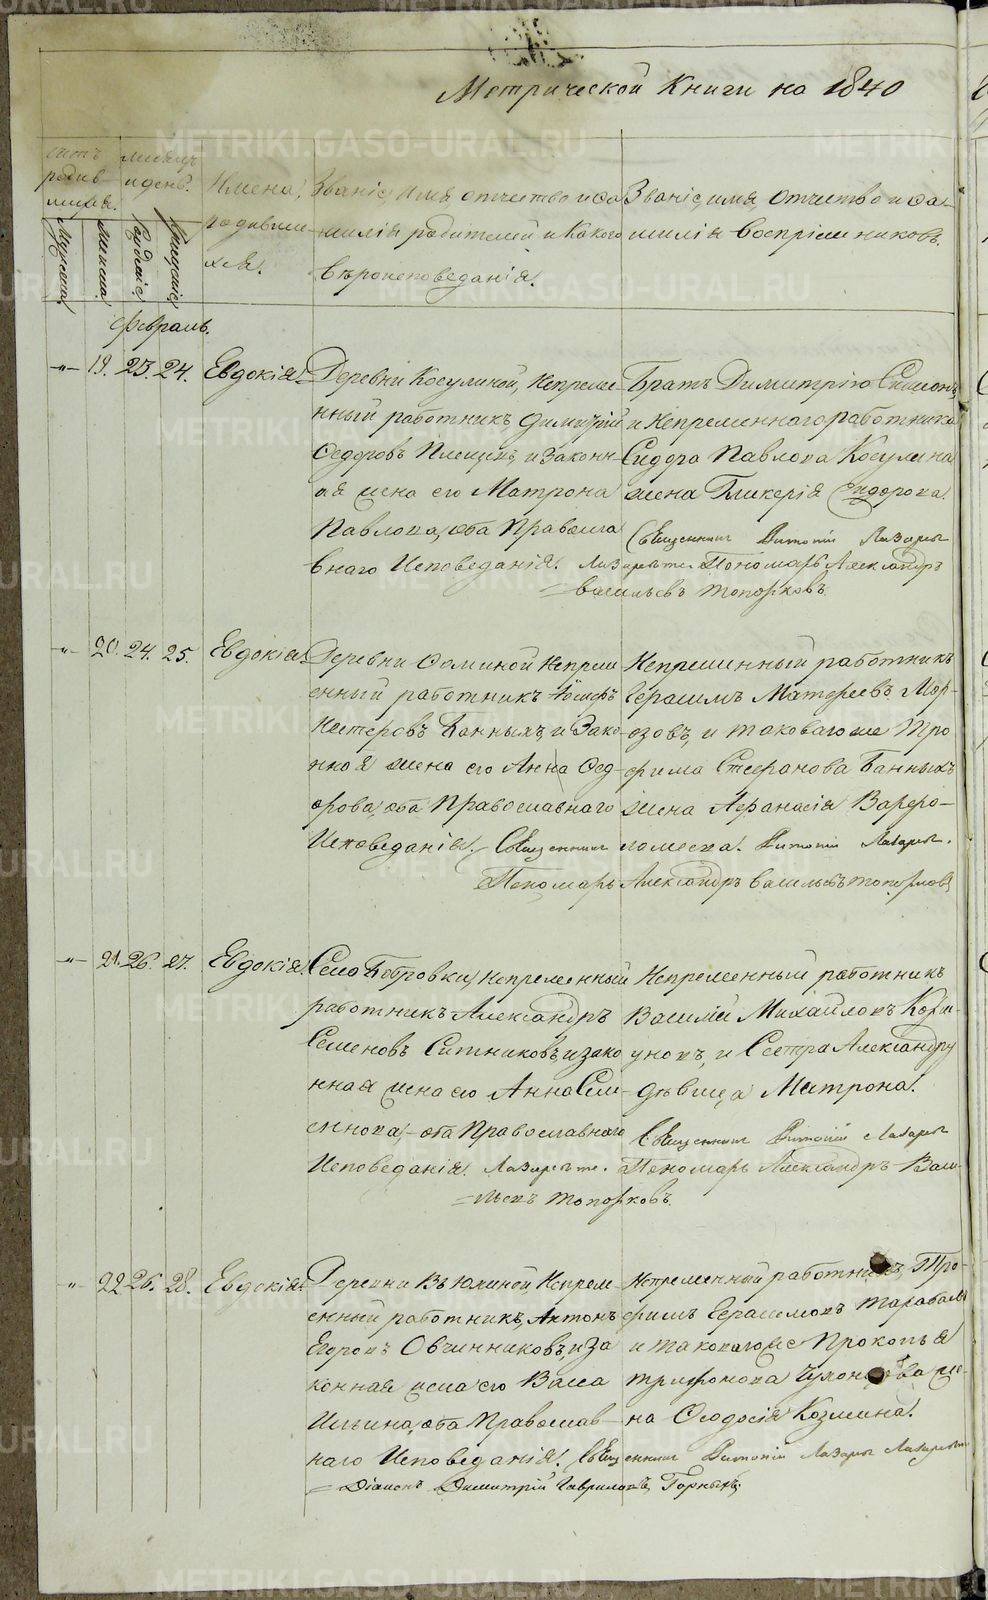 Метрической Книги на 1840
счетъ родившихся.
месяцъ и день.
Имена родившихся.
Званiе, Имя, отчество и фамилiи родителей и какого вероисповеданiя.
Званiе, имя, отчество и фамилiи восприемниковъ.
Мужеска
Женска
Рожденiе
Крещенiе
Февраль.
19. 23. 24. Евдокiя
Деревни Косулиной, Непреме-
нный работникъ Димитрiй
Федоровъ Плещевъ, и законн-
ая жена его Матрона
Павлова, оба Православ-
внаго Исповеданiя.
Братъ Димитрiю Симеонъ
и Непременнаго работника
Сидора Павлова Косулина
жена Гликерiя Сидорова.
Священникъ Лазаревъ
Пономарь Александръ
Васильевъ Топорковъ.
20. 24. 25. Евдокiя
Деревни Фоминой Непрем-
енный работникъ Iосифъ
Нестеровъ Банныхъ, и Зако-
нная жена его Анна Фед-
орова, оба Православнаго
Исповеданiя.
Непременный работникъ
Герасимъ Матфеевъ Мор-
озовъ, и таковаго же Тро
фима Стефанова Банныхъ
жена Афанасiя Варфо-
ломеева.
Священникъ Лазаревъ.
Пономарь Александръ Васильевъ Топорковъ
21. 26. 27. Евдокiя
Село Бобровки, Непременный
работникъ Александръ
Семеновъ Ситниковъ, и зако
нная жена его Анна Сем-
енова, оба Православнаго
Исповеданiя.
Непременный работникъ
Василiй Михайловъ Корш-
уновъ, и Сестра Александру
девица Матрона.
Священникъ Лазаревъ
Пономарь Александръ Васи-
льевъ Топорковъ.
22. 26. 28. Евдокiя
Деревни Вьюхиной, Непрем-
енный работникъ, Антонъ
Егоровъ Овчинниковъ, и за
конная жена его Васса
Ильина, оба Православ-
наго Исповеданiя.
Непременный работникъ, Тро-
фимъ Герасимовъ
и таковаго же Прокопья
Трифонова же-
на Феодосiя Козмина.
Священникъ Лазаревъ
Дiаконъ Димитрiй Гавриловъ Горныхъ